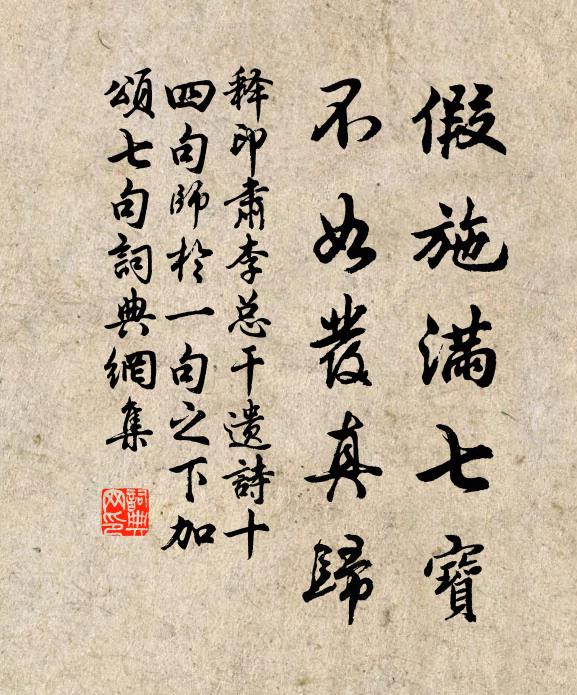 假施满七寶
不如發真歸
释印肅李总干遗詩十
四句師於一句之下加
頌七句詞典網集
詞典网印